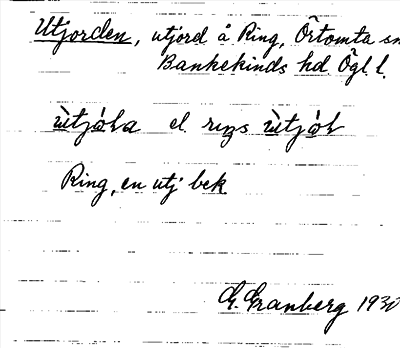 Utjorden, utjord å Ring, Örtomta sn
Bankekinds hd. Ögl. l.
ùtjóɫa el. rıŋs ùtjóɫ
Ring, en utj bek
G. Granberg 1930